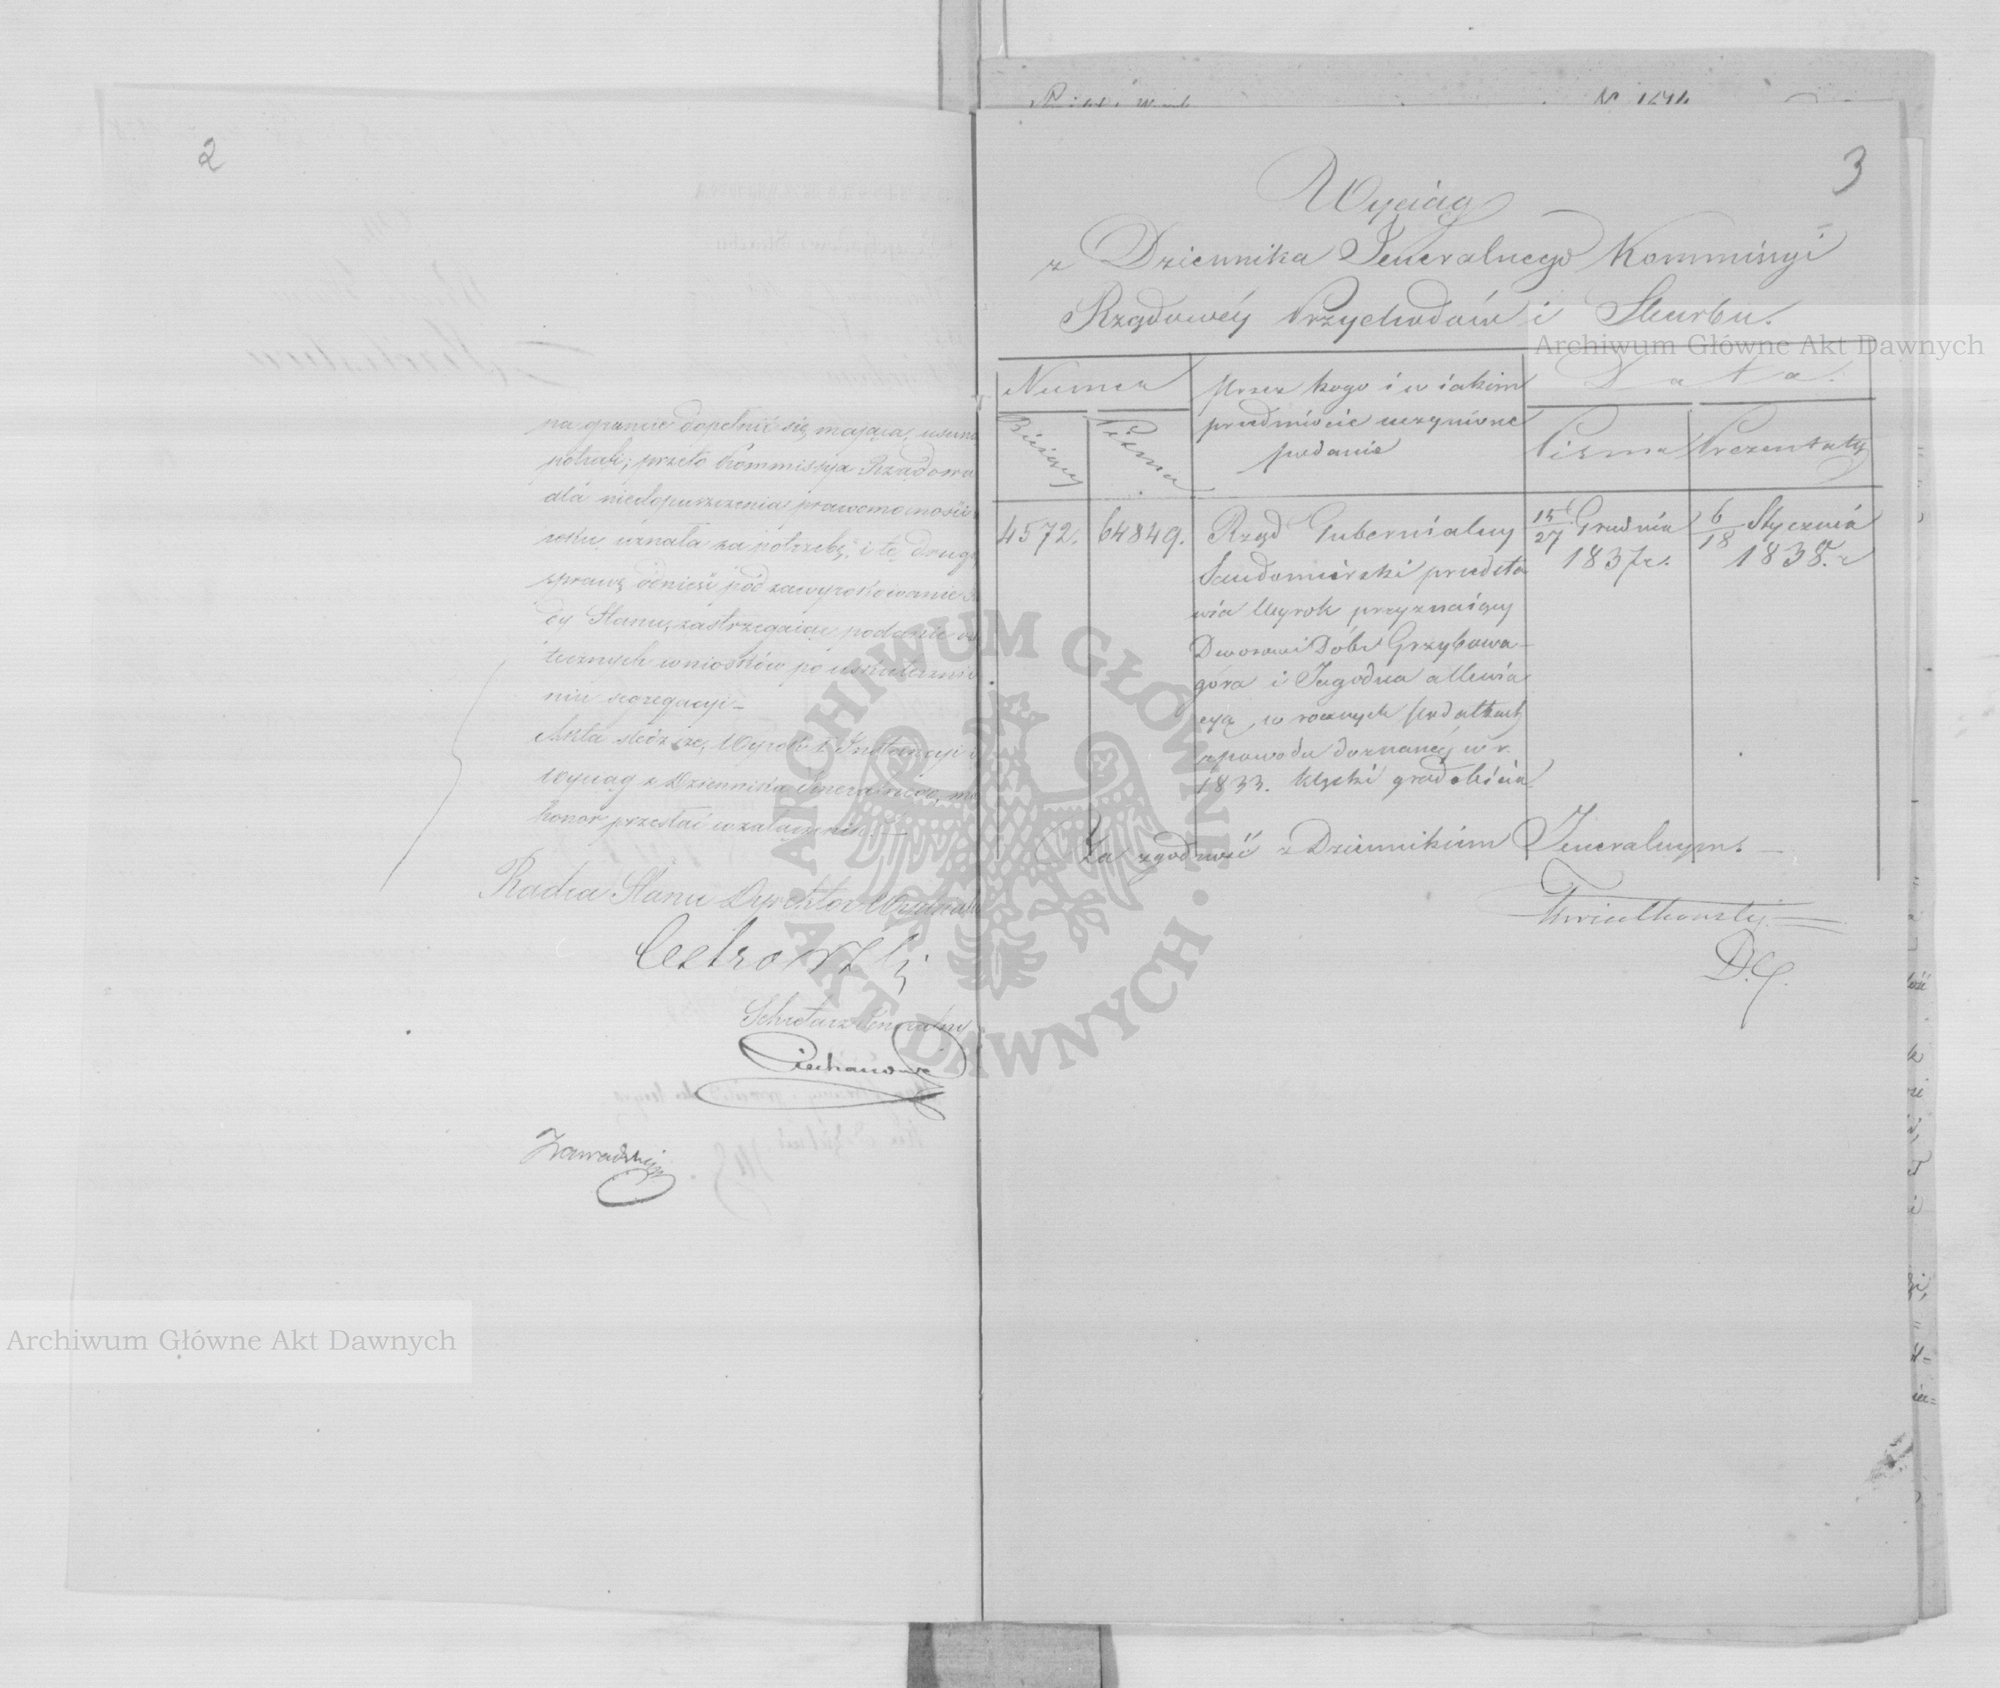 2
na gruncie dopełnić się mająca, usunąć
potrafi; przeto Kommissya Rządowa
dla niedopuszczenia prawomocności
roku, uznała za potrzebę, i tę drugą
sprawę odnieść pod zawyrokowanie
dy Stanu, zastrzegając podanie
tecznych wniosków po uskutecznie
niu segregacyi_
Akta śledcze, Wyrok I. Instancyi i
Wyciąg z Dziennika Jeneralnego, ma
honor przesłać w załączeniu._
Radca Stanu Dyrektor Wydziału
Sekretarz Jeneralny
Ciechanowski
Zawadzki
3
Wyciąg
z Dziennika Jeneralnego Kommissyi
Rządowéy Przychodów i Skarbu.
Numer
Bieżący
Pisma
przez kogo i w iakim
przedmiocie uczynione
podanie
Data.
Pisma
Prezentaty
4572.
64849.
Rząd Gubernialny
Sandomierski przedsta
wia Wyrok przyznaiący
Dworowi Dóbr Grzybowa-
góra i Jagodna allewia
cyą w rocznych podatkach
z powodu doznanéy w r.
1833. klęski gradobicia
15/27 Grudnia
1837 r.
6/18 Stycznia
1838. r
Za zgodność z Dziennikiem Jeneralnym. _
Kwiatkowski
D. J.
Archiwum Główne Akt Dawnych
Archiwum Główne Akt Dawnych
ARCHIWUM GŁÓWNE AKT DAWNYCH